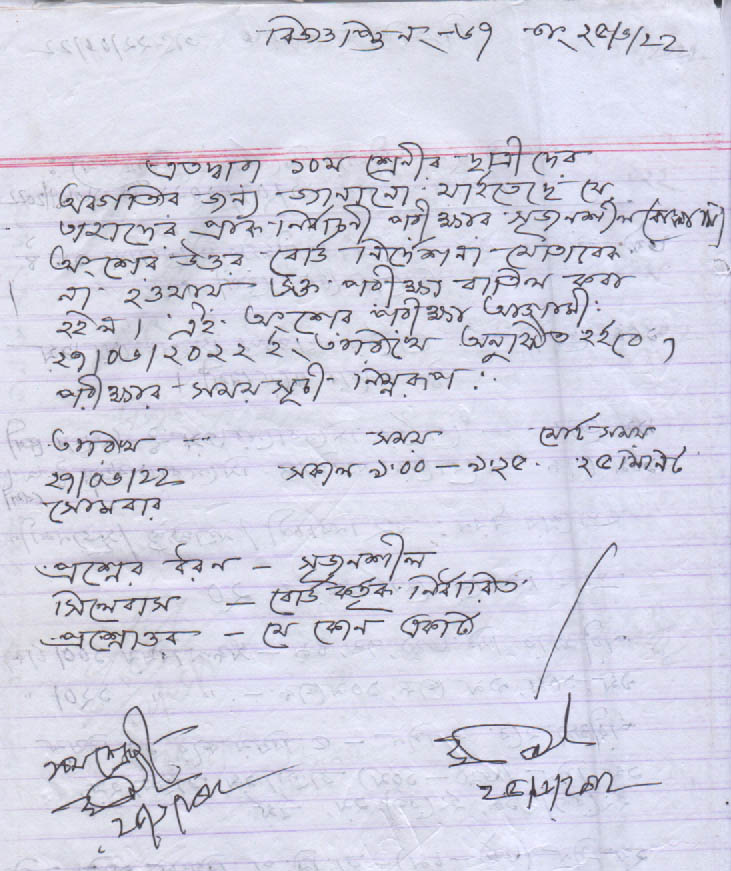 বিজ্ঞপ্তি নং-৬৭ তাং ২৫/৬/২২
এতদ্বারা ১০ম শ্রেনীর ছাত্রীদের
অবগতির জন্য জানানো যাইতেছে যে,
তাহাদের প্রাক নির্বাচনী পরীক্ষার সৃজনশীল
অংশের উত্তর বোর্ড নির্দেশনা মোতাবেক
না হওয়ায় উক্ত পরীক্ষা বাতিল করা
হইল। এই অংশের পরীক্ষা আগামী
২৭/০৬/২০২২ ইং তারিখে অনুষ্ঠিত হইবে,
পরীক্ষার সময়সূচী নিম্নরূপ:
তারিখ সময় মোট সময়
২৭/০৬/২২ সকাল ৯:০০ – ৯:২৫ ২৫ মিনিট
সোমবার
প্রশ্নের ধরন – সৃজনশীল
সিলেবাস – বোর্ড কর্তৃক নির্ধারিত
প্রশ্নোত্তর – যে কোন একটি